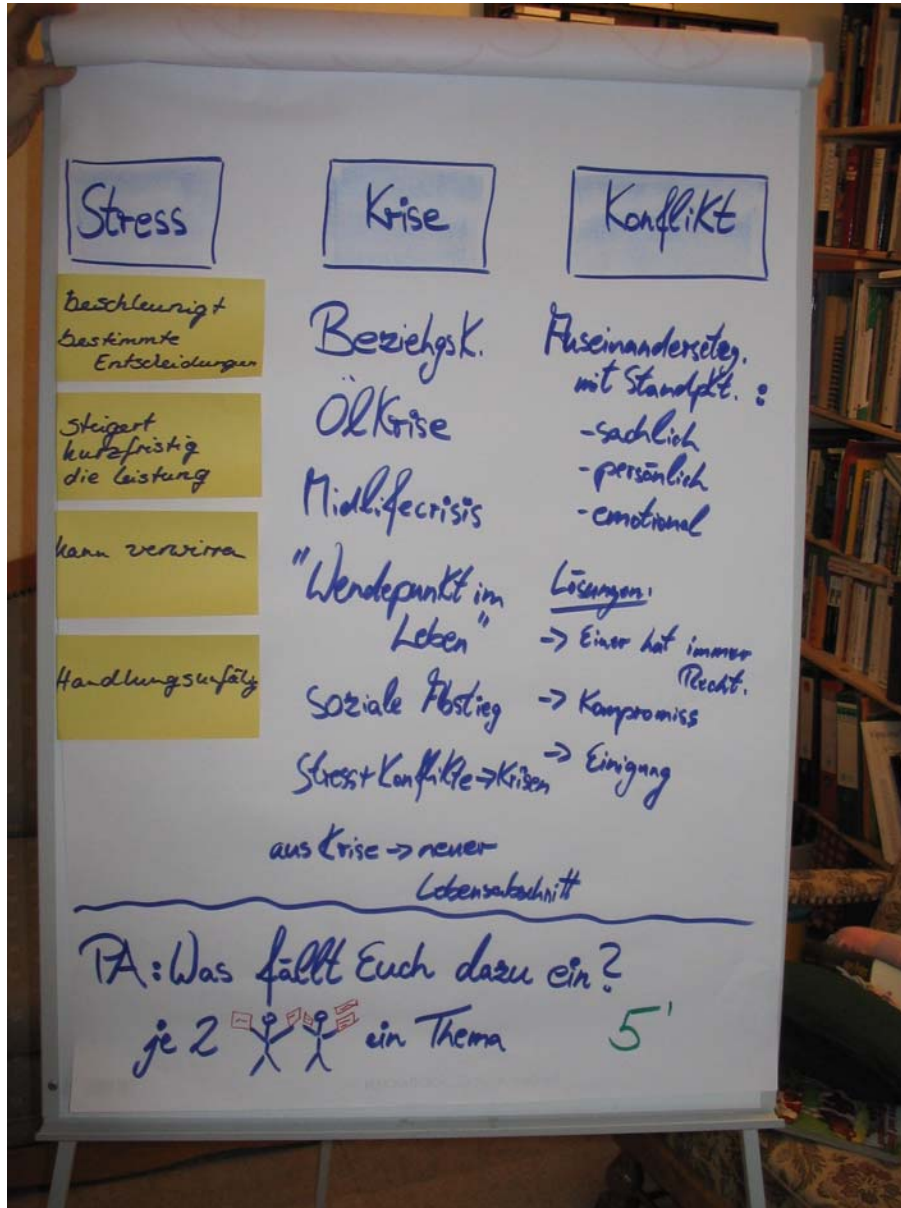 Stress
beschleunigt
bestimmte
Entscheidungen
steigert
kurzfristig
die Leistung
kann verwirren
Handlungsunfähig
Krise
Beziehgsk.
Ölkrise
Midlifecrisis
"Wendepunkt im
Leben"
soziale Abstieg
Stress+Konflikte->Krisen
aus Krise -> neuer
Lebensabschnitt
Konflikt
Auseinandersetzg.
mit Standpkt. :
-sachlich
-persönlich
-emotional
Lösungen:
-> Einer hat immer
Recht.
-> Kompromiss
-> Einigung
PA: Was fällt Euch dazu ein?
je 2 ein Thema 5'